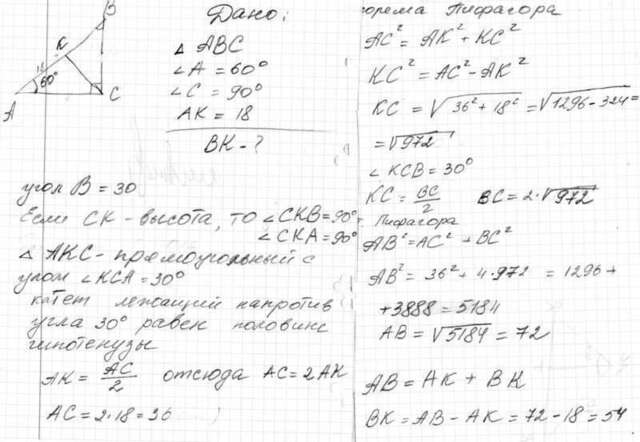 B
K
18
60°
A
C
Дано:
△ ABC
∠A = 60°
∠C = 90°
AK = 18
BK - ?
угол B = 30
Если CK - высота, то ∠CKB = 90°
∠CKA = 90°
△ AKC - прямоугольный с
углом ∠KCA = 30°
катет лежащий напротив
угла 30° равен половине
гипотенузы
AK = AC/2 отсюда AC = 2AK
AC = 2·18 = 36
теорема Пифагора
AC² = AK² + KC²
KC² = AC² - AK²
KC = √36² + 18² = √1296 - 324 =
= √972
∠ KCB = 30°
KC = BC/2 BC = 2·√972
Пифагора
AB² = AC² + BC²
AB² = 36² + 4·972 = 1296 +
+ 3888 = 5184
AB = √5184 = 72
AB = AK + BK
BK = AB - AK = 72 - 18 = 54